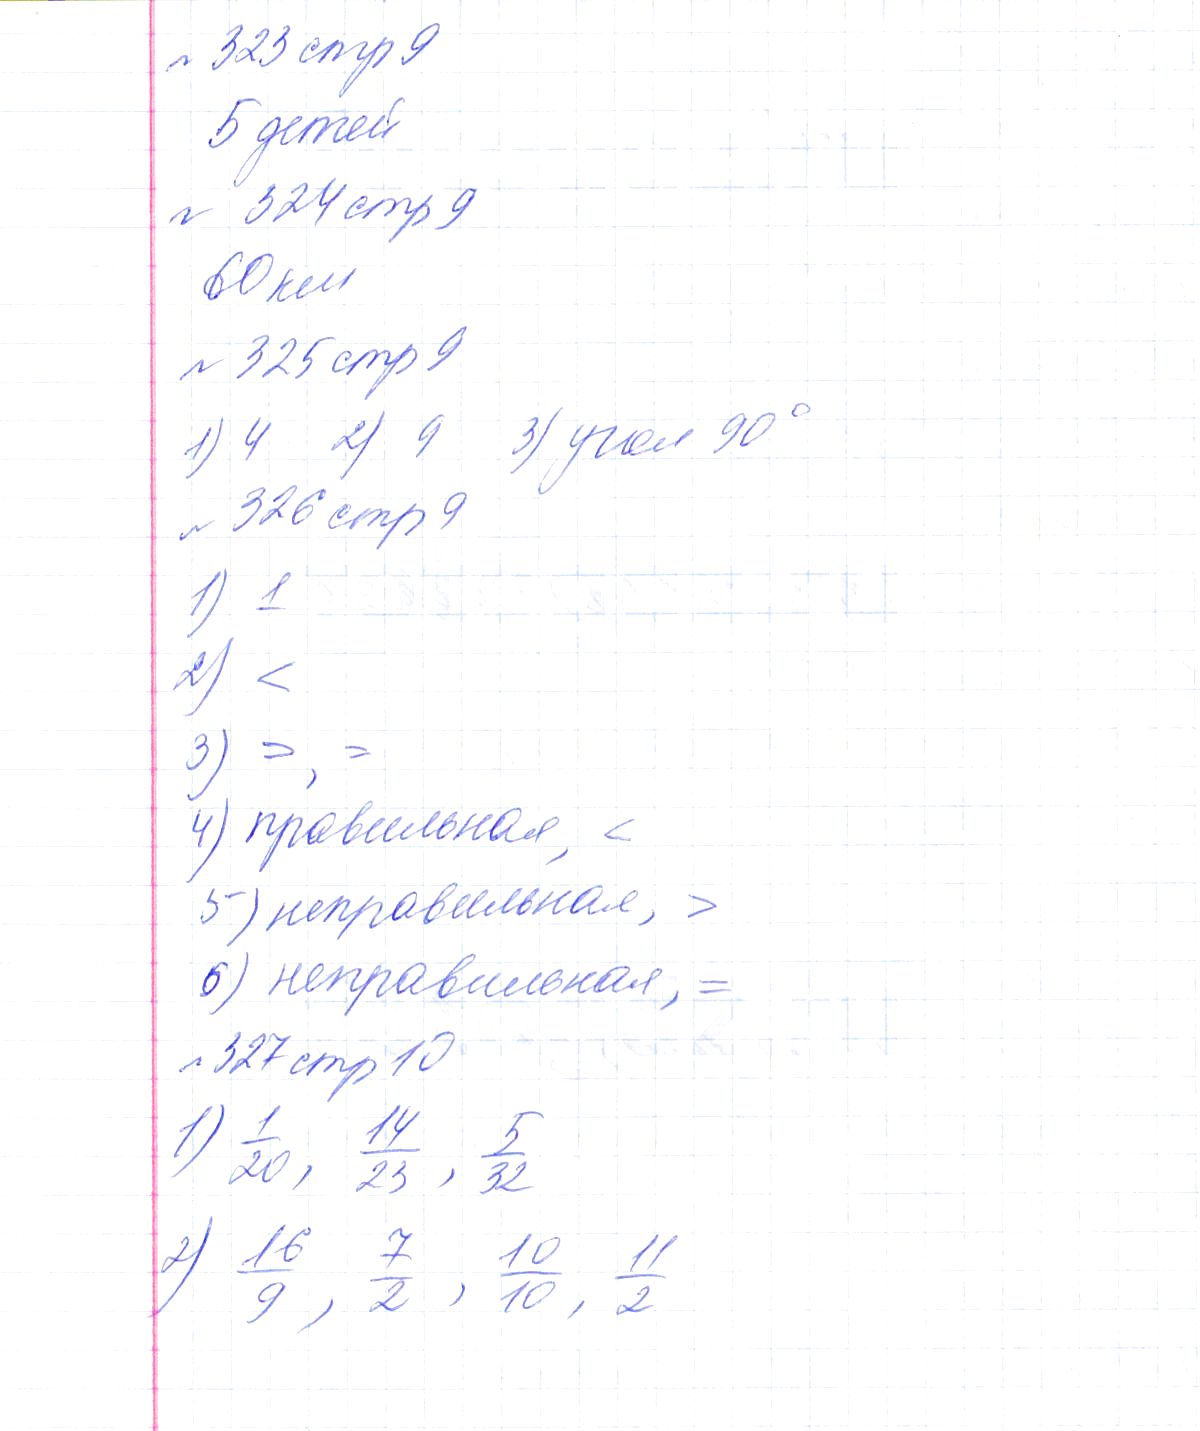 № 323 стр 9
5 детей
№ 324 стр 9
60 км
№ 325 стр 9
1) 4 2) 9 3) угол 90°
№ 326 стр 9
1) 1
2) <
3) =, =
4) правильная, <
5) неправильная, >
6) неправильная, =
№ 327 стр 10
1) 1/20, 14/23, 5/32
2) 16/9, 7/2, 10/10, 11/2